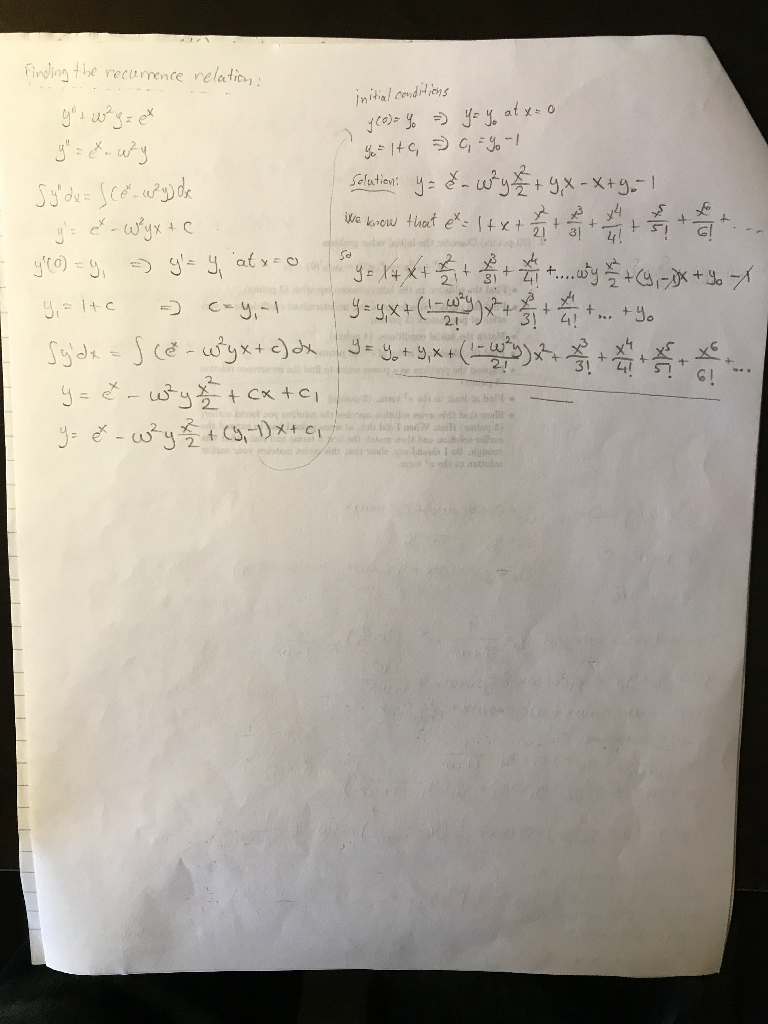 Finding the recurrence relation:
y'' + ω²y = eˣ
y'' = eˣ - ω²y
∫y''dx = ∫(eˣ - ω²y)dx
y' = eˣ - ω²yx + C
y'(0) = y₁ ⇒ y' = y₁ at x = 0
y₁ = 1 + c ⇒ c = y₁ - 1
∫y'dx = ∫(eˣ - ω²yx + c)dx
y = eˣ - ω²y x²/2 + cx + c₁
y = eˣ - ω²y x²/2 + (y₁-1)x + c₁
initial conditions
y(0) = y₀ ⇒ y = y₀ at x = 0
y₀ = 1 + c₁ ⇒ c₁ = y₀ - 1
Solution: y = eˣ - ω²y x²/2 + y₁x - x + y₀ - 1
We know that eˣ = 1 + x + x²/2! + x³/3! + x⁴/4! + x⁵/5! + x⁶/6! + ...
So
y = 1 + x + x²/2! + x³/3! + x⁴/4! + .... ω²y x²/2 + (y₁-1)x + y₀ - 1
y = y₁x + ((1-ω²y)/2!)x² + x³/3! + x⁴/4! + ... + y₀
y = y₀ + y₁x + ((1-ω²y)/2!)x² + x³/3! + x⁴/4! + x⁵/5! + x⁶/6! + ...